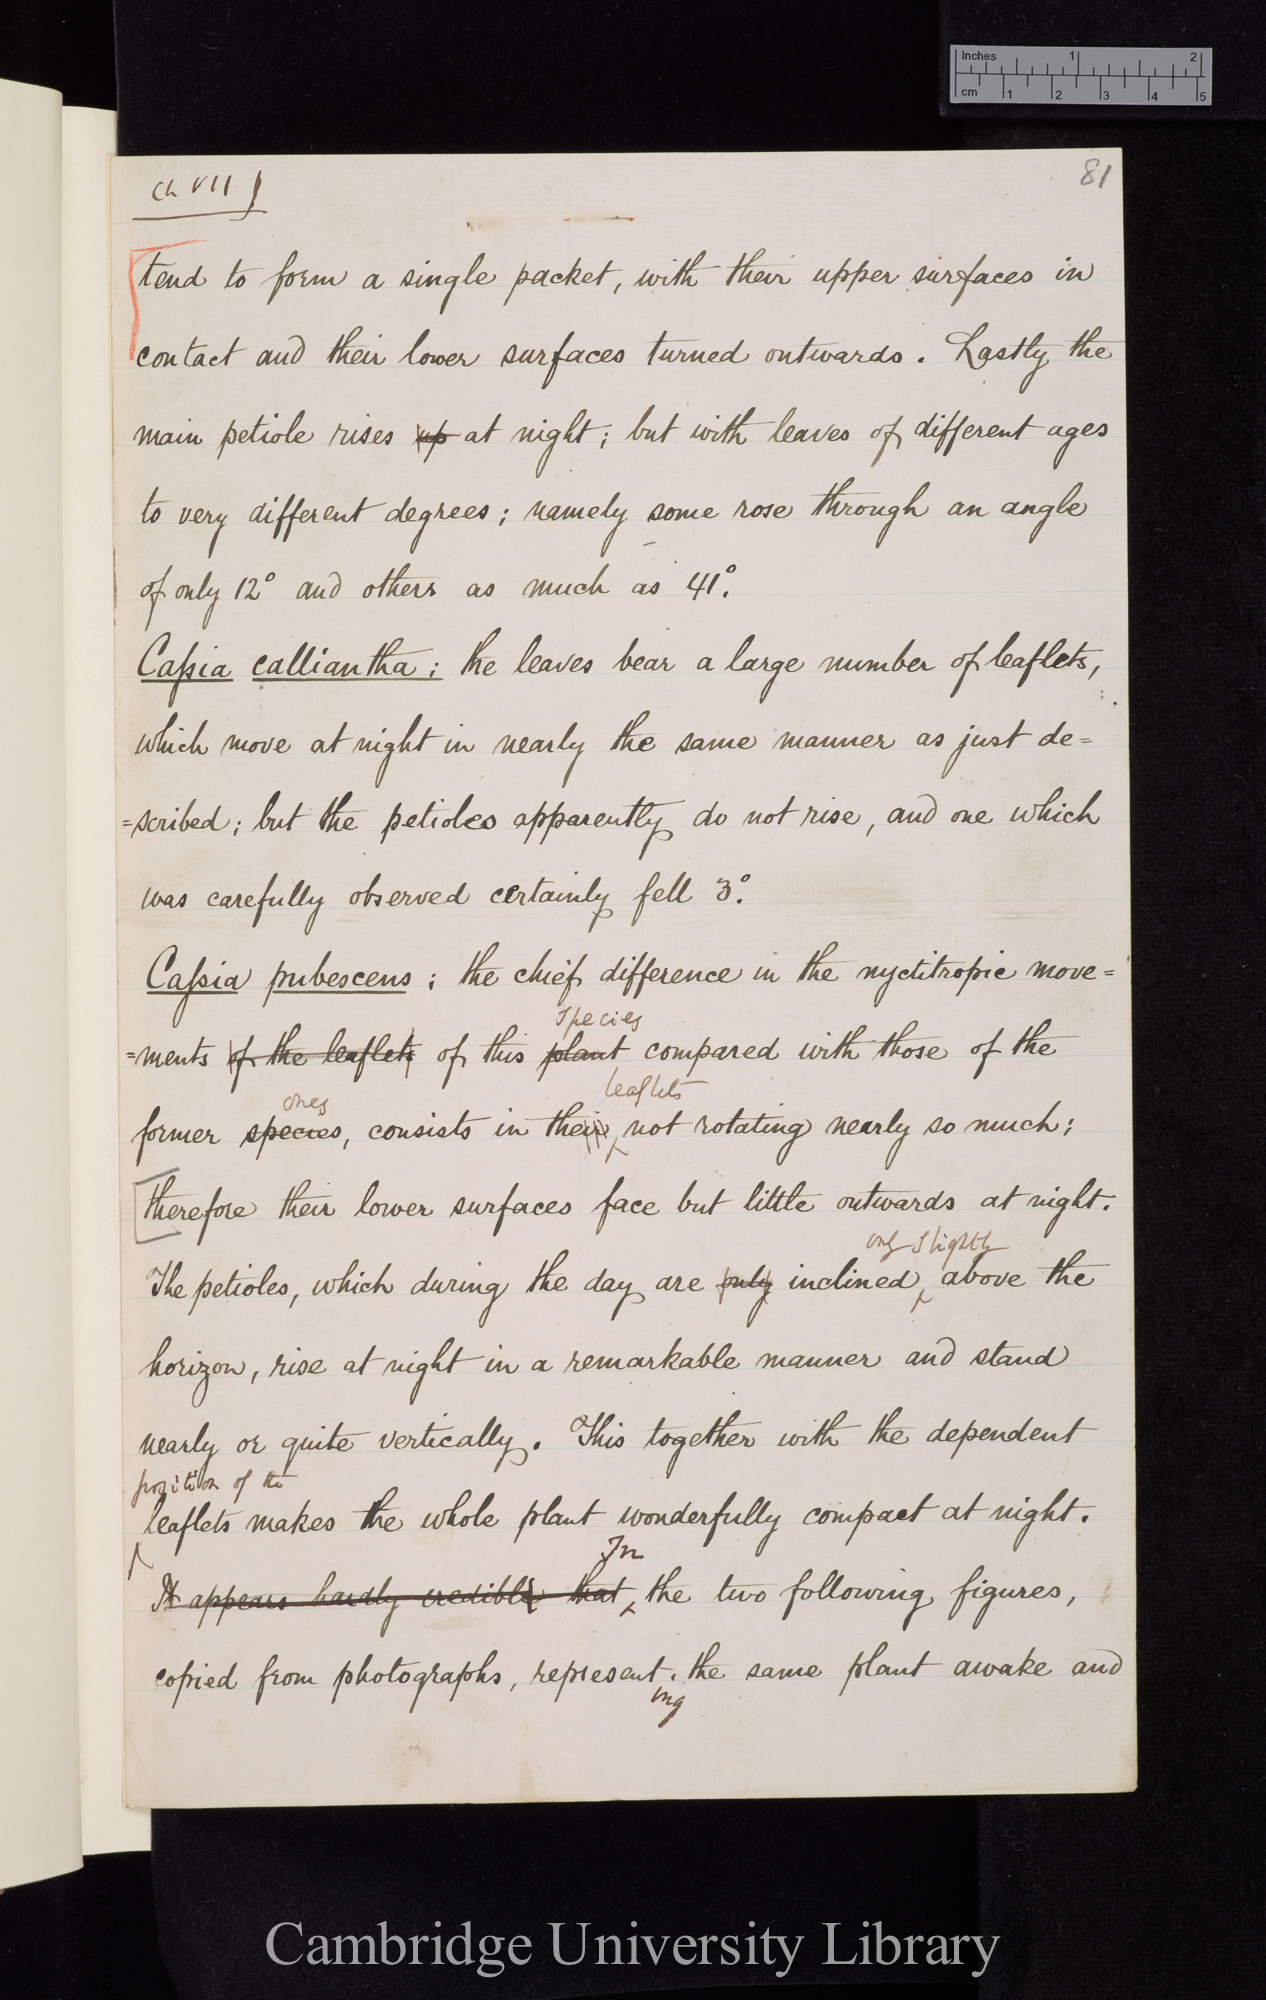 Inches 1 2
cm 1 2 3 4 5
Ch VII
81
tend to form a single packet, with their upper surfaces in
contact and their lower surfaces turned outwards. Lastly the
main petiole rises up at night; but with leaves of different ages
to very different degrees; namely some rose through an angle
of only 12° and others as much as 41°.
Caſsia calliantha: the leaves bear a large number of leaflets,
which move at night in nearly the same manner as just de=
=scribed; but the petioles apparently do not rise, and one which
was carefully observed certainly fell 3°.
Caſsia pubescens; the chief difference in the nyctitropic move=
species
=ments of the leaflets of this plant compared with those of the
ones leaflets
former species, consists in their not rotating nearly so much;
therefore their lower surfaces face but little outwards at night.
only slightly
The petioles, which during the day are only inclined, above the
horizon, rise at night in a remarkable manner and stand
nearly or quite vertically. This together with the dependent
position of the
leaflets makes the whole plant wonderfully compact at night.
In
It appears hardly credible that, the two following figures,
copied from photographs, represent. the same plant awake and
ing
Cambridge University Library